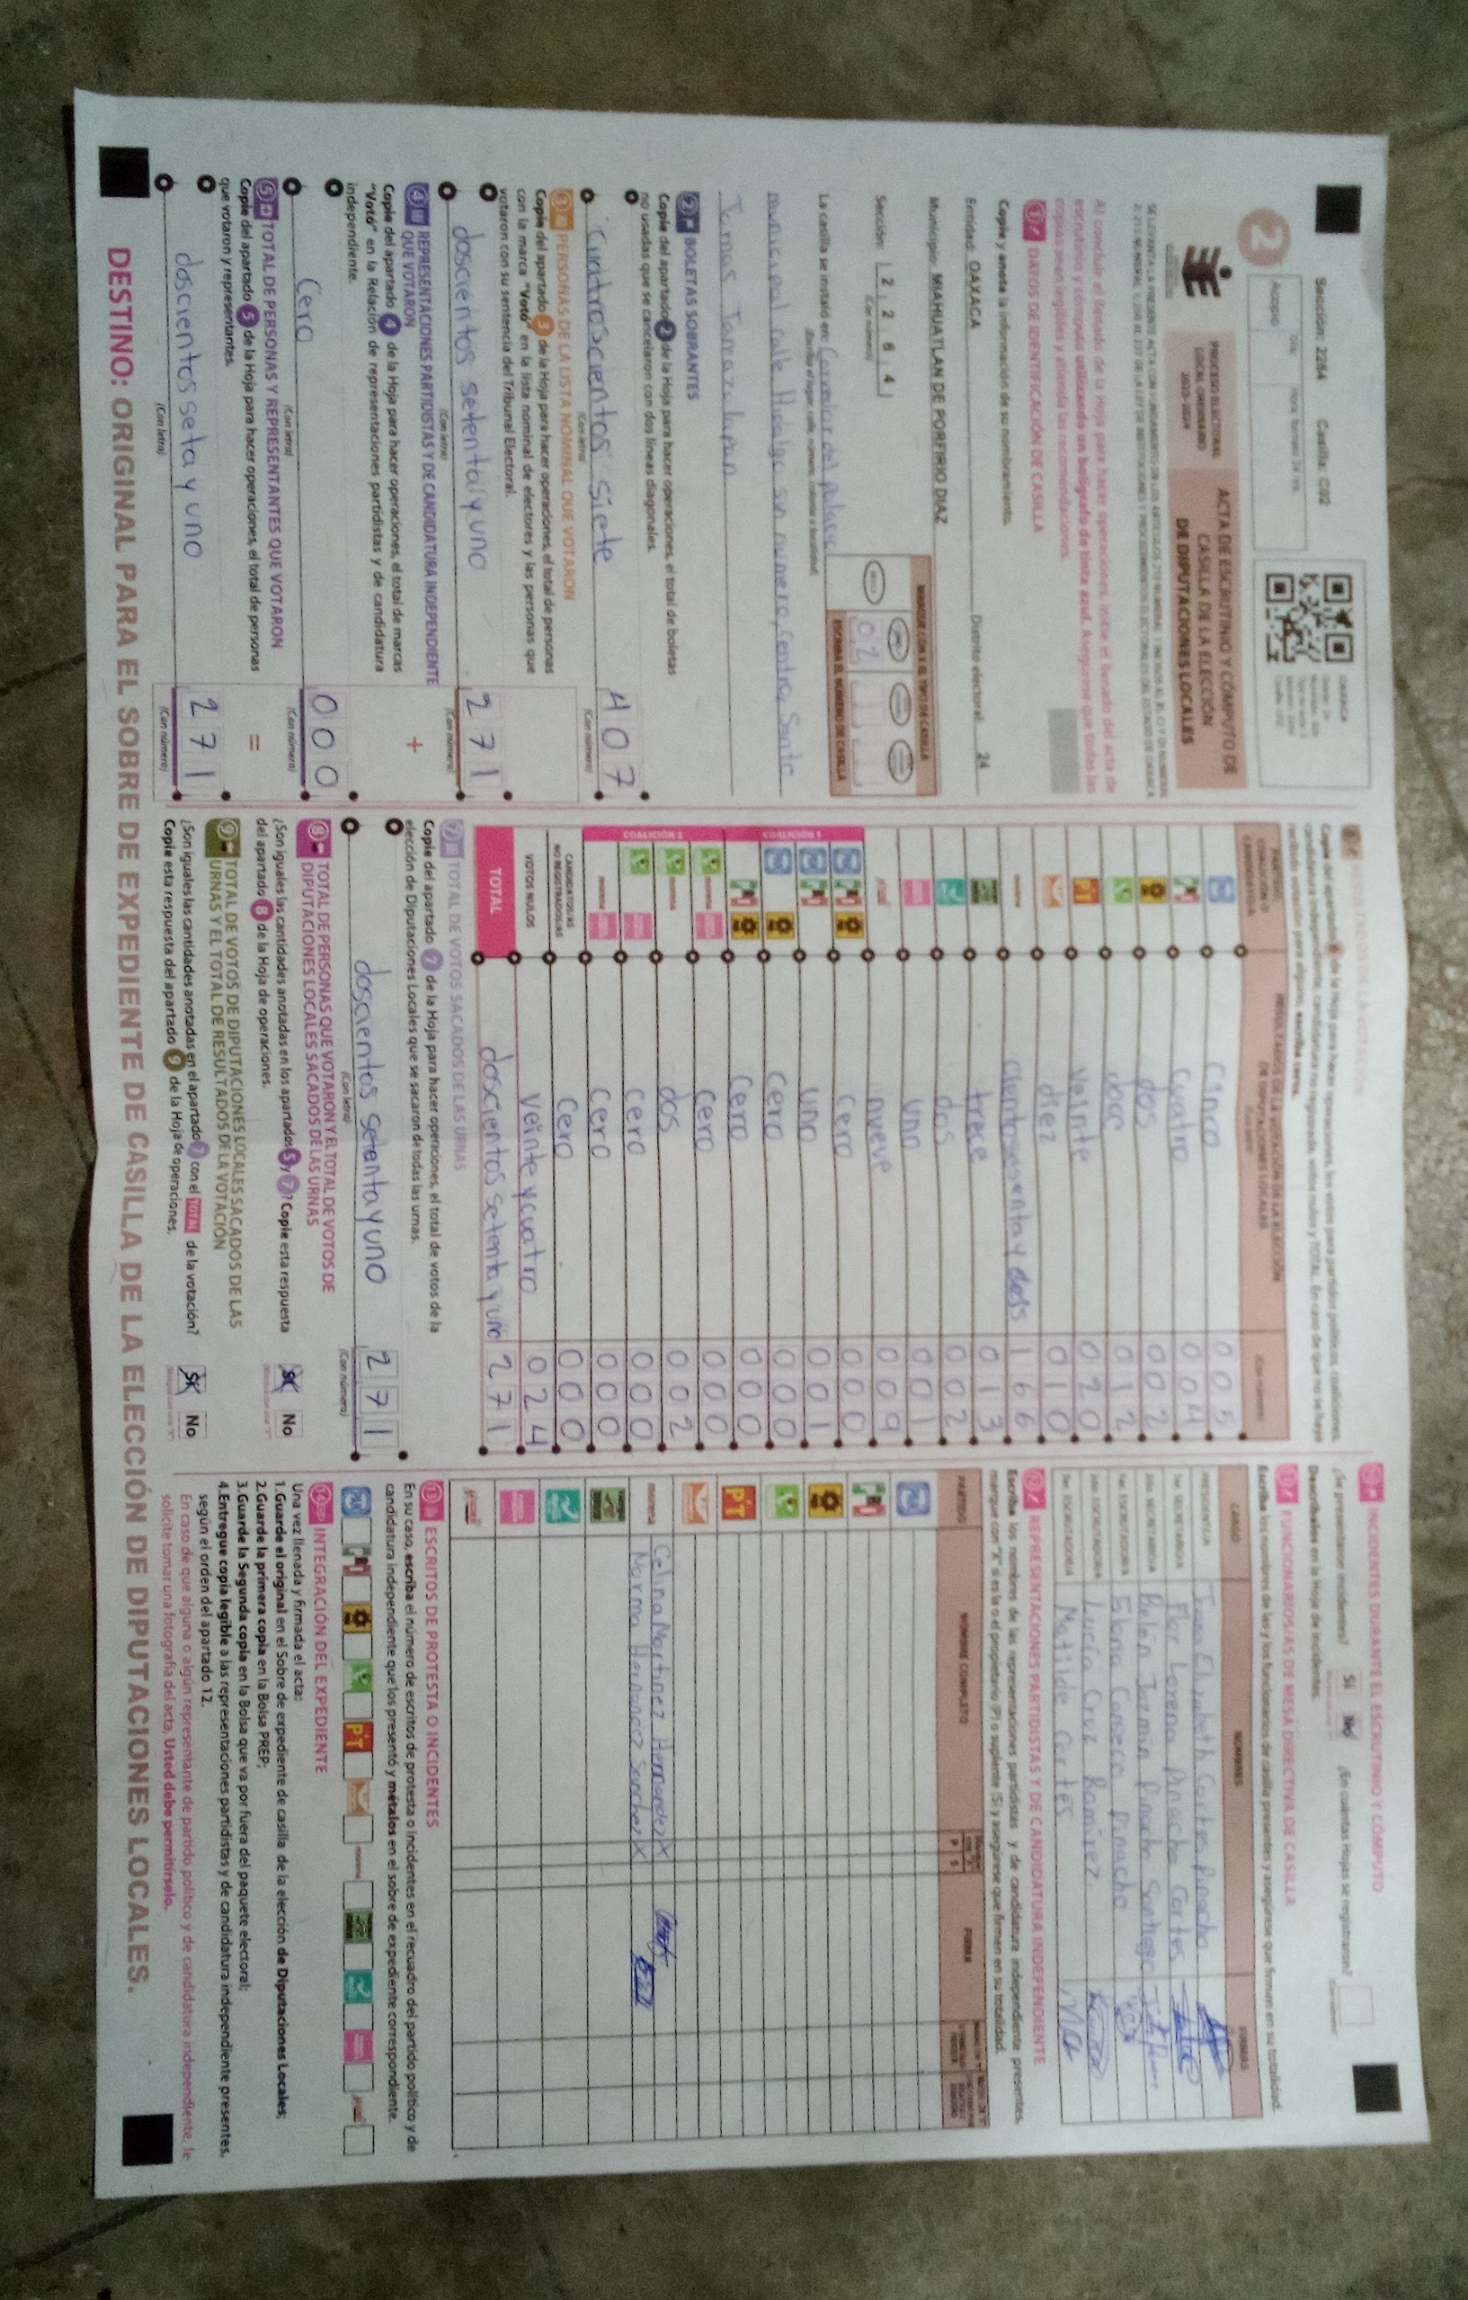 Sección: 2264 Casilla: C02
OAXACA
2
Acopio
PROCESO ELECTORAL
LOCAL ORDINARIO
2023-2024
ACTA DE ESCRUTINIO Y CÓMPUTO DE
CASILLA DE LA ELECCIÓN
DE DIPUTACIONES LOCALES
Al concluir el llenado de la Hoja para hacer operaciones, inicie el llenado del acta de
escrutinio y cómputo utilizando un bolígrafo de tinta azul. Asegúrese que todas las
copias sean legibles y atienda las recomendaciones.
1 DATOS DE IDENTIFICACIÓN DE CASILLA
Copie y anote la información de su nombramiento.
Entidad: OAXACA Distrito electoral: 24
Municipio: MIAHUATLAN DE PORFIRIO DIAZ
MARQUE CON X EL TIPO DE CASILLA
Sección: 2 2 6 4
(Con número)
ESCRIBA EL NÚMERO DE CASILLA
02
La casilla se instaló en: Corredor del palacio
municipal calle Hidalgo sin numero, Centro, Santo
Tomas Tamazulapan
2 BOLETAS SOBRANTES
Copie del apartado 2 de la Hoja para hacer operaciones, el total de boletas
no usadas que se cancelaron con dos líneas diagonales.
Cuatroscientos siete 407
(Con letra) (Con número)
3 PERSONAS DE LA LISTA NOMINAL QUE VOTARON
Copie del apartado 3 de la Hoja para hacer operaciones, el total de personas
con la marca "Votó" en la lista nominal de electores y las personas que
votaron con su sentencia del Tribunal Electoral.
doscientos setenta y uno 271
(Con letra) (Con número)
4 REPRESENTACIONES PARTIDISTAS Y DE CANDIDATURA INDEPENDIENTE
QUE VOTARON +
Copie del apartado 4 de la Hoja para hacer operaciones, el total de marcas
"Votó" en la Relación de representaciones partidistas y de candidatura
independiente.
Cero 000
(Con letra) (Con número)
5 TOTAL DE PERSONAS Y REPRESENTANTES QUE VOTARON
Copie del apartado 5 de la Hoja para hacer operaciones, el total de personas =
que votaron y representantes.
doscientos seta y uno 271
(Con letra) (Con número)
Copie del apartado 6 de la Hoja para hacer operaciones, los votos para partidos políticos, coaliciones,
PARTIDO,
COALICIÓN O
CANDIDATO/A
RESULTADOS DE LA VOTACIÓN DE LA ELECCIÓN
DE DIPUTACIONES LOCALES
Cinco 005
Cuatro 004
dos 002
doce 012
PT Veinte 020
diez 010
morena 166
trece 013
dos 002
uno 001
nueve 009
COALICIÓN 1
Cero 000
uno 001
cero 000
Cero 000
COALICIÓN 2
cero 000
dos 002
cero 000
Cero 000
CANDIDATOS/AS
NO REGISTRADOS/AS Cero 000
VOTOS NULOS Veinte y cuatro 024
TOTAL doscientos setenta y uno 271
7 TOTAL DE VOTOS SACADOS DE LAS URNAS
Copie del apartado 7 de la Hoja para hacer operaciones, el total de votos de la
elección de Diputaciones Locales que se sacaron de todas las urnas.
doscientos setenta y uno 271
(Con letra) (Con número)
8 TOTAL DE PERSONAS QUE VOTARON Y EL TOTAL DE VOTOS DE
DIPUTACIONES LOCALES SACADOS DE LAS URNAS
¿Son iguales las cantidades anotadas en los apartados 5 y 7? Copie esta respuesta
del apartado 8 de la Hoja de operaciones.
Sí No
9 TOTAL DE VOTOS DE DIPUTACIONES LOCALES SACADOS DE LAS
URNAS Y EL TOTAL DE RESULTADOS DE LA VOTACIÓN
¿Son iguales las cantidades anotadas en el apartado 7 con el TOTAL de la votación?
Copie esta respuesta del apartado 9 de la Hoja de operaciones.
Sí No
INCIDENTES DURANTE EL ESCRUTINIO Y CÓMPUTO
¿Se presentaron incidentes? Sí No ¿En cuántas Hojas se registraron?
Descríbalos en la Hoja de incidentes.
FUNCIONARIOS/AS DE MESA DIRECTIVA DE CASILLA
Escriba los nombres de las y los funcionarios de casilla presentes y asegúrese que firmen en su totalidad.
CARGO NOMBRES FIRMAS
PRESIDENTE/A Juana Elizabeth Cortes Pinacho
1er. SECRETARIO/A Flor Lorena Pinacho Cortes
2do. SECRETARIO/A Belén Jazmin Pinacho Santiago
1er. ESCRUTADOR/A Elena Canseco Pinacho
2do. ESCRUTADOR/A Lucía Cruz Ramírez
3er. ESCRUTADOR/A Matilde Cortes
REPRESENTACIONES PARTIDISTAS Y DE CANDIDATURA INDEPENDIENTE
Escriba los nombres de las representaciones partidistas y de candidatura independiente presentes,
marque con "X" si es la o el propietario (P) o suplente (S) y asegúrese que firmen en su totalidad.
PARTIDO NOMBRE COMPLETO P S FIRMA
PAN
PRI
PT
morena Celina Martinez Hernandez X
Norma Hernandez Sanchez X
ESCRITOS DE PROTESTA O INCIDENTES
En su caso, escriba el número de escritos de protesta o incidentes en el recuadro del partido político y de
candidatura independiente que los presentó y métalos en el sobre de expediente correspondiente.
PAN PRI PT morena
INTEGRACIÓN DEL EXPEDIENTE
Una vez llenada y firmada el acta:
1. Guarde el original en el Sobre de expediente de casilla de la elección de Diputaciones Locales;
2. Guarde la primera copia en la Bolsa PREP;
3. Guarde la Segunda copia en la Bolsa que va por fuera del paquete electoral;
4. Entregue copia legible a las representaciones partidistas y de candidatura independiente presentes,
según el orden del apartado 12.
En caso de que alguna o algún representante de partido político y de candidatura independiente, le
solicite tomar una fotografía del acta, Usted debe permitírselo.
DESTINO: ORIGINAL PARA EL SOBRE DE EXPEDIENTE DE CASILLA DE LA ELECCIÓN DE DIPUTACIONES LOCALES.